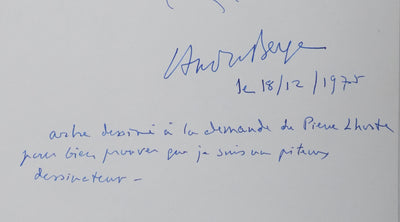 André Berge
le 18/12/1975
arbre dessiné à la demande de Pierre Lhoste
pour bien prouver que je suis un piteux
dessinateur –